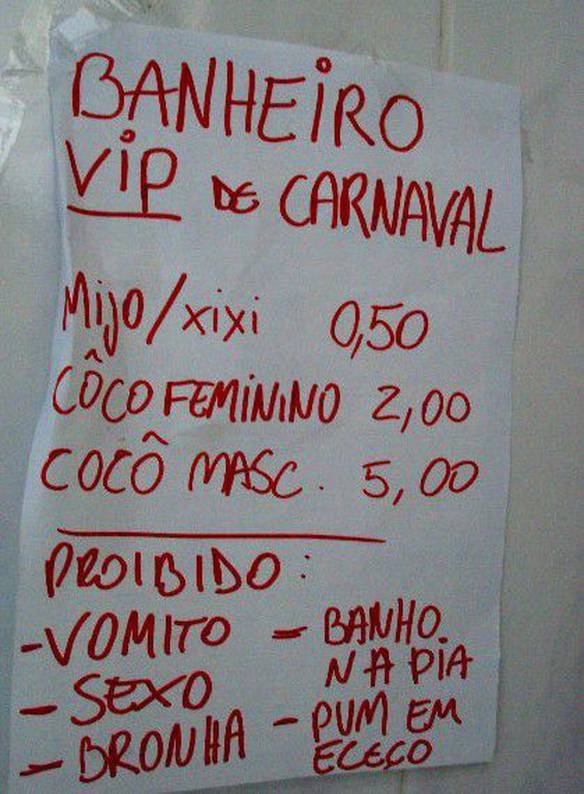 BANHEIRO
VIP DE CARNAVAL
Mijo/xixi 0,50
CÔCO FEMININO 2,00
COCÔ MASC. 5,00
PROIBIDO:
-VOMITO
- SEXO
- BRONHA
- BANHO
NA PIA
- PUM EM
ECEÇO